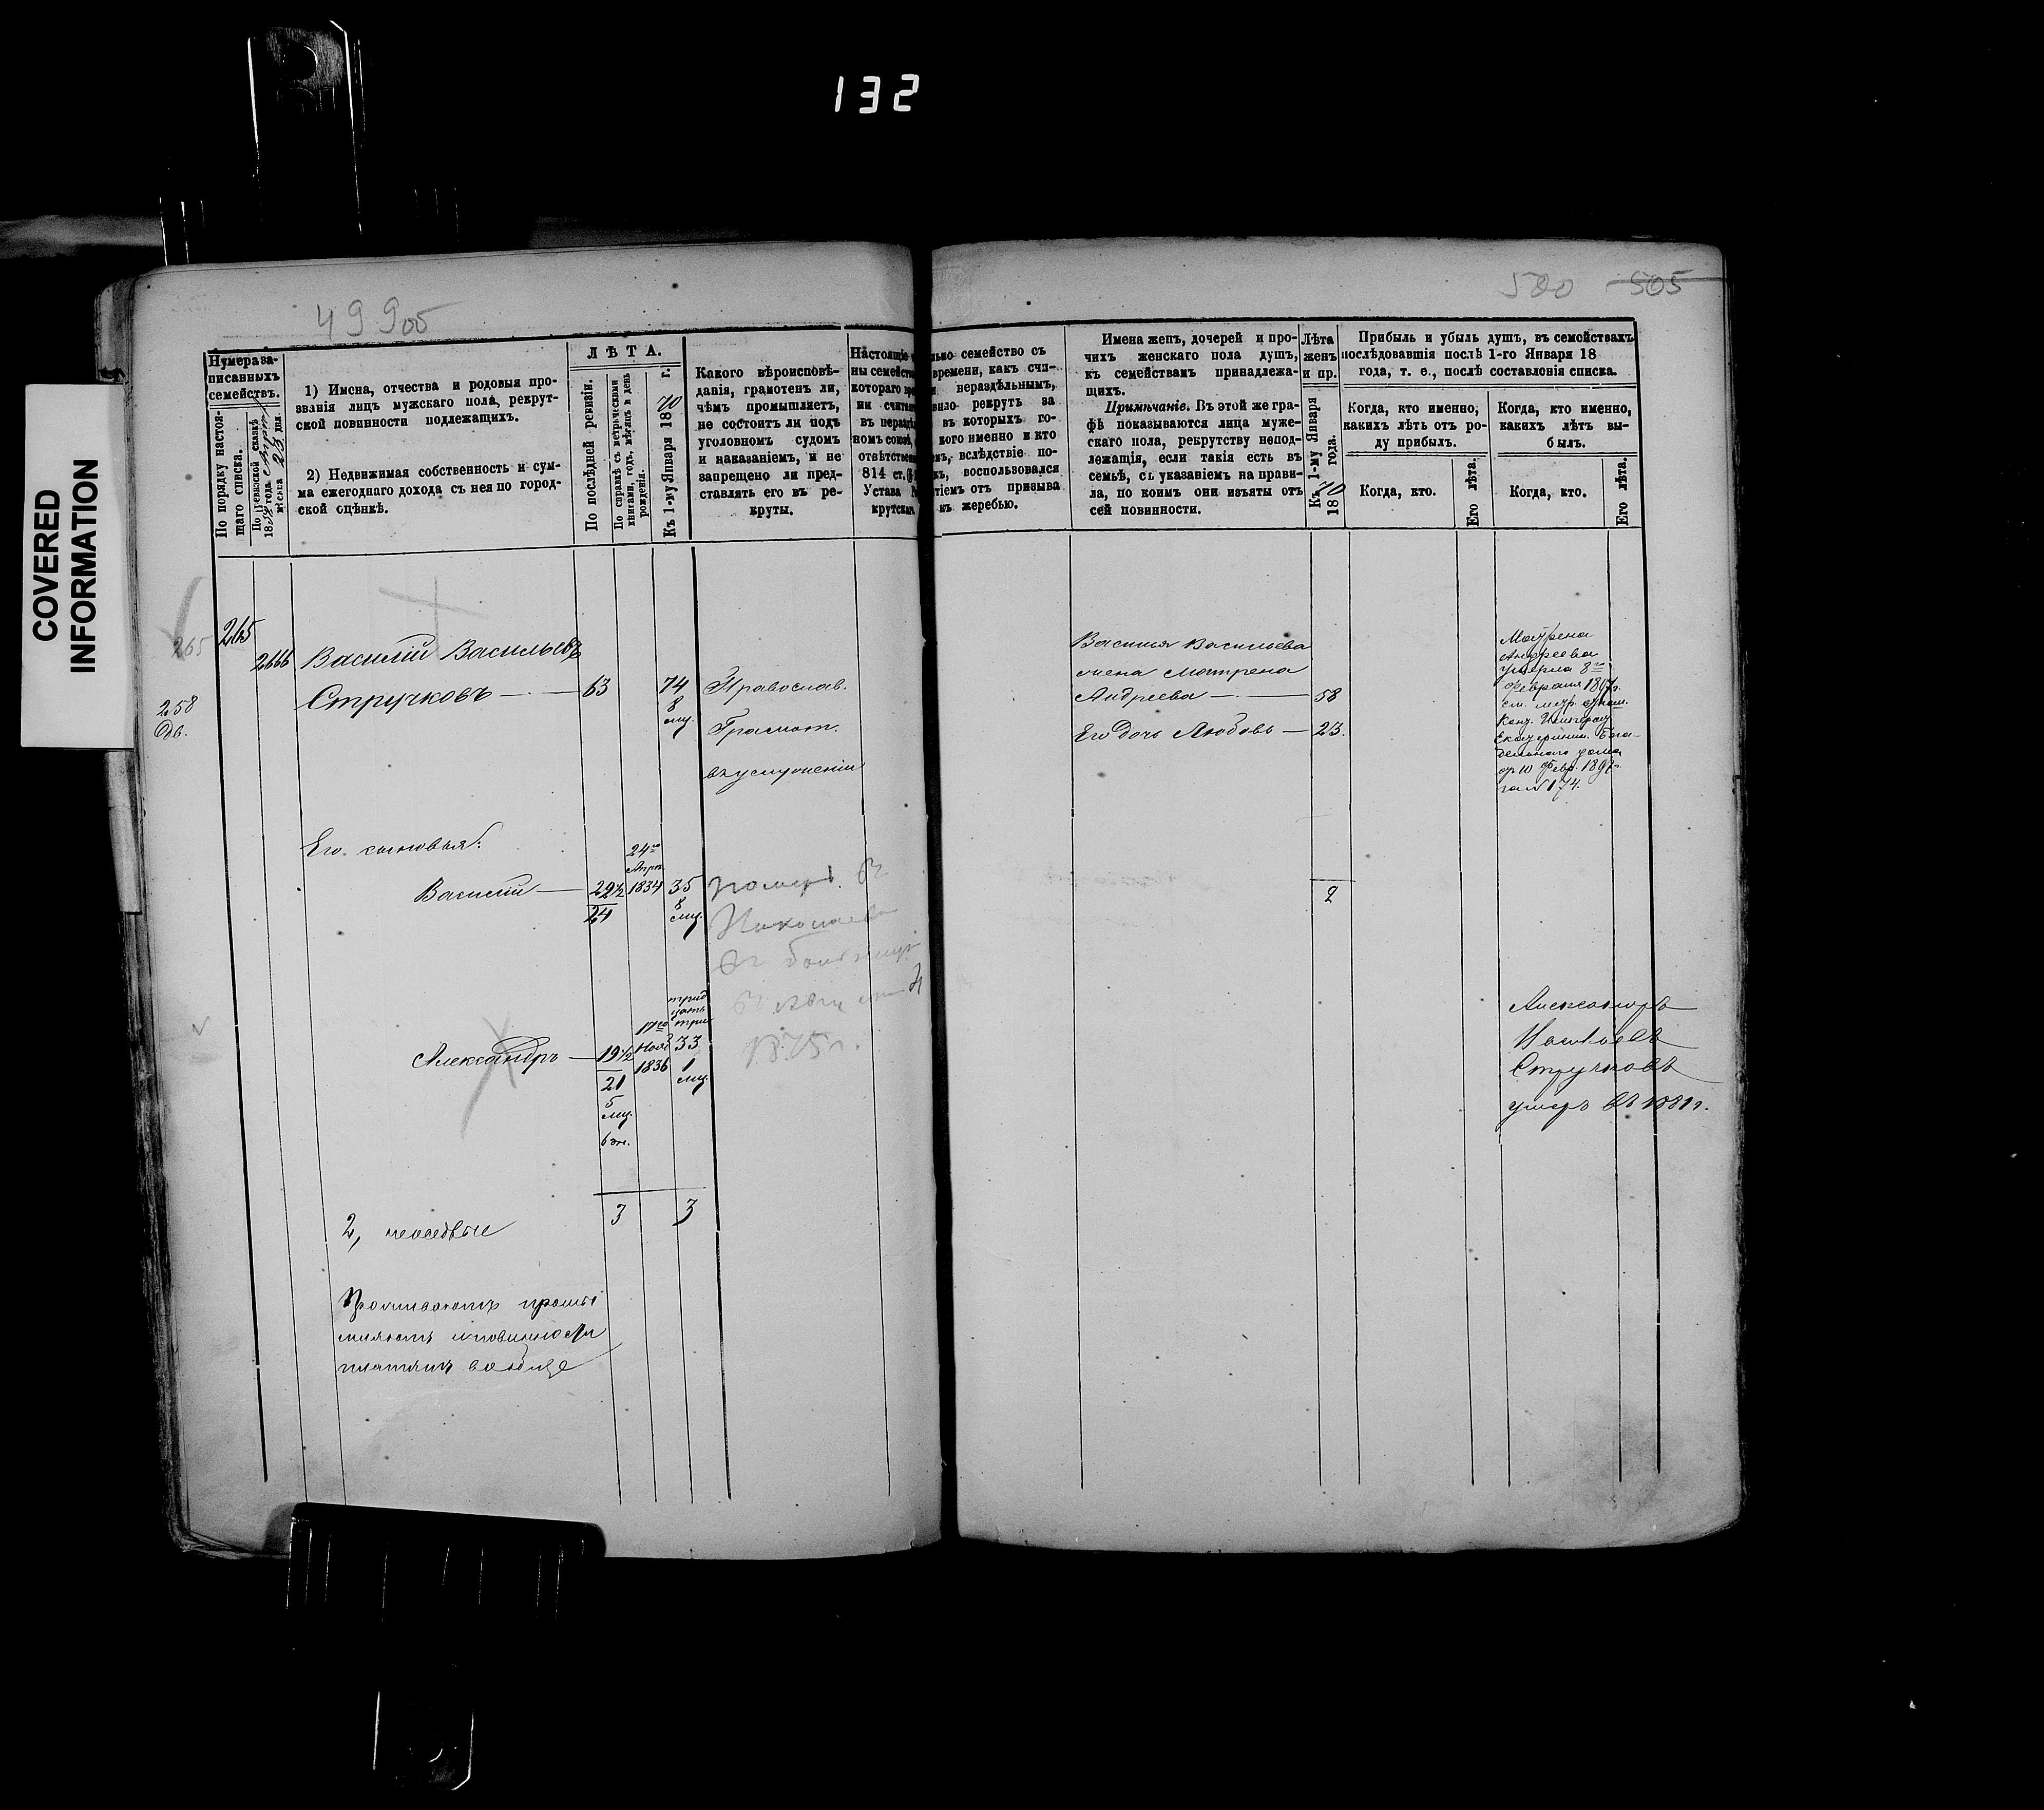 132
COVERED
INFORMATION
499об
500 505
Нумера за-
писанныхъ
семействъ.
По порядку настоя-
щаго списка.
По ревизской сказкѣ
1858 года
мѣсяца 23 дня
1) Имена, отчества и родовыя про-
званія лицъ мужскаго пола, рекрут-
ской повинности подлежащихъ.
2) Недвижимая собственность и сум-
ма ежегоднаго дохода съ нея по город-
ской оцѣнкѣ.
ЛѢТА.
По послѣдней ревизіи.
По справкѣ съ метрическими
книгами, годъ, мѣсяцъ и день
рожденія.
Къ 1-му Января 1870 г.
Какого вѣроисповѣ-
данія, грамотенъ ли,
чѣмъ промышляетъ,
не состоитъ ли подъ
уголовномъ судомъ
и наказаніемъ, и не
запрещено ли пред-
ставлять его въ ре-
круты.
Настоящіе
ны семейств
котораго
ли счита
въ нераздѣ
номъ союзѣ,
отвѣтствен
814 ст.
Устава
крутскаго
семейство съ
времени, какъ счи-
нераздѣльнымъ,
рекрутъ за
въ которыхъ го-
кого именно и кто
вслѣдствіе по-
воспользовался
тіемъ отъ призыва
къ жеребью.
Имена женъ, дочерей и про-
чихъ женскаго пола душъ,
къ семействамъ принадлежа-
щихъ.
Примѣчаніе. Въ этой же гра-
фѣ показываются лица муже-
скаго пола, рекрутству непод-
лежащія, если такія есть въ
семьѣ, съ указаніемъ на прави-
ла, по коимъ они изъяты отъ
сей повинности.
Лѣта
женъ
и пр.
Къ 1-му Января
1870 года.
Прибыль и убыль душъ, въ семействахъ
послѣдовавшія послѣ 1-го Января 18
года, т. е., послѣ составленія списка.
Когда, кто именно,
какихъ лѣтъ отъ ро-
ду прибылъ.
Когда, кто.
Его лѣта.
Когда, кто именно,
какихъ лѣтъ вы-
былъ.
Когда, кто.
Его лѣта.
265
265
258
Об.
2666
Василій Васильевъ
Стручковъ — 63 74
8
мц.
Православ.
Грамот.
въ услуженіи
Василья Васильева
жена Матрена
Андреева — 58
Его дочь Любовь — 23.
2
Матрена
Андреева
умерла 8го
Февраля 1897г.
Екатерин. Бога-
дельнаго дома
от 10 Февр. 1897г.
за № 174.
Его сыновья:
Василій — 29½
24
24го
Апрѣ
1834
35
8
мц.
померъ въ
Николаев
въ больниц
1875г.
Александръ — 19½
21
5
мц.
17го
Нояб
1836
трид
цать
три
33
1
мц.
Александръ
Стручковъ
умеръ въ 1881г.
3 3
2,
Проживаютъ промы
шляютъ и повинности
платятъ вообще